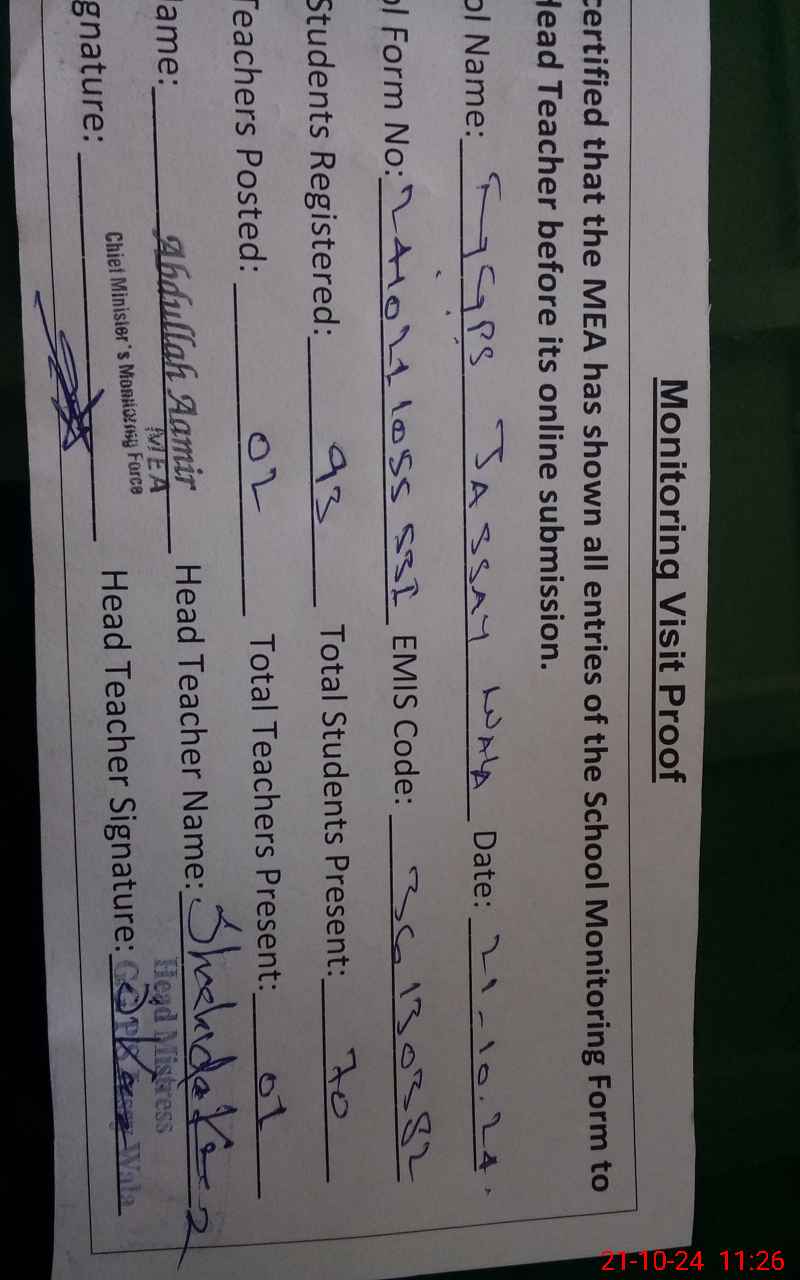 Monitoring Visit Proof
certified that the MEA has shown all entries of the School Monitoring Form to
Head Teacher before its online submission.
ol Name: GGPS JASSAY WALA Date: 21-10.24.
ol Form No: EMIS Code: 36130382
Students Registered: 93 Total Students Present: 70
Teachers Posted: 02 Total Teachers Present: 02
Name: Abdullah Aamir Head Teacher Name: Shahida
MEA
Chief Minister's Monitoring Force
Head Mistress
gnature: Head Teacher Signature:
Wala
21-10-24 11:26